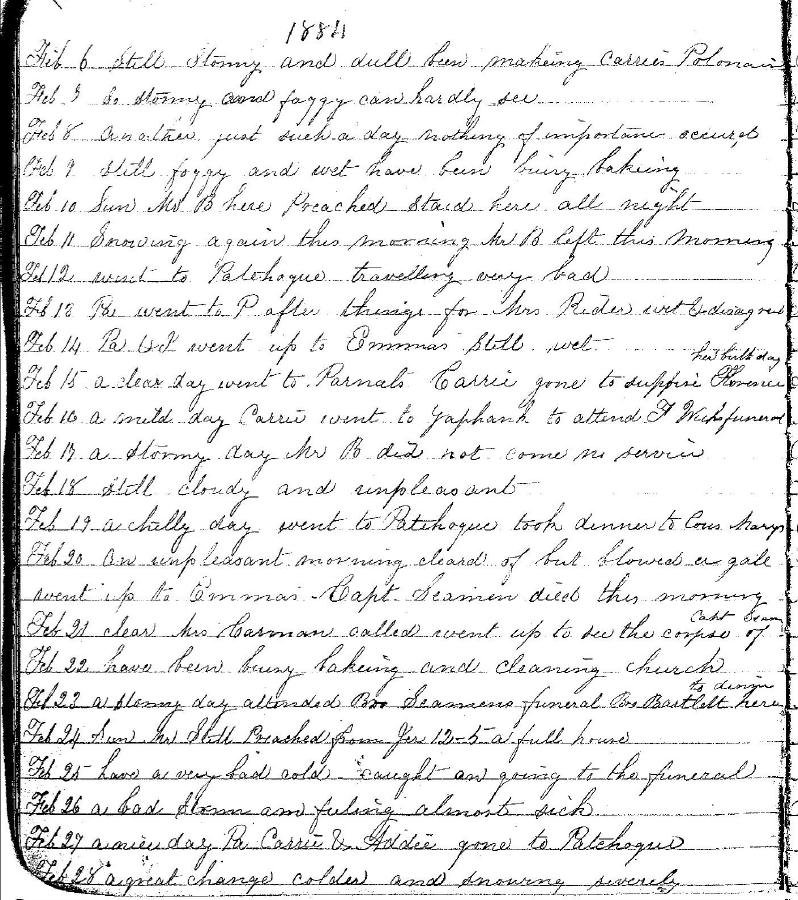 1884
Feb 6 Still Stormy and dull been makeing Carries Polonais
Feb 7 So stormy and foggy can hardly see
Feb 8 Another just such a day nothing of importance occured
Feb 9 Still foggy and wet have been busy bakeing
Feb 10 Sun Mr B here Preached staid here all night
Feb 11 Snowing again this morning Mr B left this morning
Feb 12 went to Patchogue travelling very bad
Feb 13 Pa went to P after things for Mrs Rider wet & disagree
Feb 14 Pa & I went up to Emmas still wet
her birth day
Feb 15 a clear day went to Parnals Carrie gone to supprise Florence
Feb 16 a mild day Carrie went to Yaphank to attend F Weeks funeral
Feb 17 a stormy day Mr B did not come no service
Feb 18 still cloudy and unpleasant
Feb 19 a chilly day went to Patchogue took dinner to Cous Marys
Feb 20 an unpleasant morning cleard of but blowed a gale
went up to Emmas Capt. Seamen died this morning
Capt Seam
Feb 21 clear Mrs Carman called went up to see the corpse of
Feb 22 have been busy bakeing and cleaning church
to dinner
Feb 23 a stormy day attended Bro Seamens funeral Bro Bartlett here
Feb 24 Sun Mr Still Preached from Jer 12-5 a full house
Feb 25 have a very bad cold caught an going to the funeral
Feb 26 a bad storm am feling almost sick
Feb 27 a nice day Pa Carrie & Addie gone to Patchogue
Feb 28 a great change colder and snowing severely